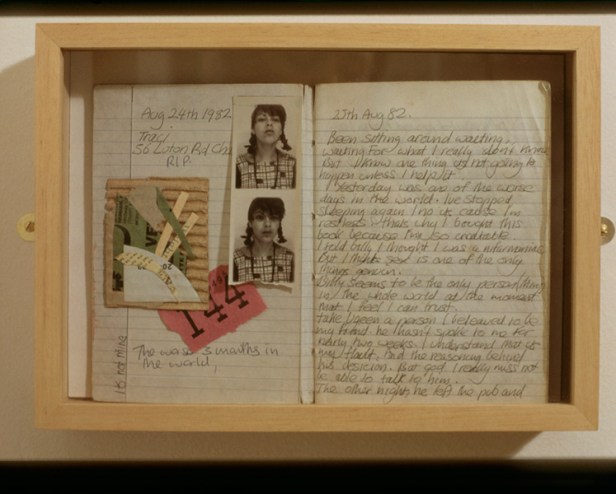 Aug 24th 1982
Traci
56 Luton Rd Cha
RIP.
VE
144
The worse 3 months in
the world,
its not mine
25th Aug 82.
Been sitting around waiting,
waiting for what I really don't know
But I know one thing its not going to
happen unless I help it
Yesterday was one of the worse
days in the world. I've stopped
sleeping again no cause Im
restless. thats why I bought this
book because Im so
I told billy I thought I was a
but I think god is one of the only
things
Billy seems to be the only person
in the whole world at the moment
that I feel I can trust.
take a person I beleaved to be
my friend he hasn't spoke to me for
nearly two weeks. I understand that its
my fault, and the reasoning behind
his decision. But god I really miss not
be able to talk to him.
The other night he left the pub and